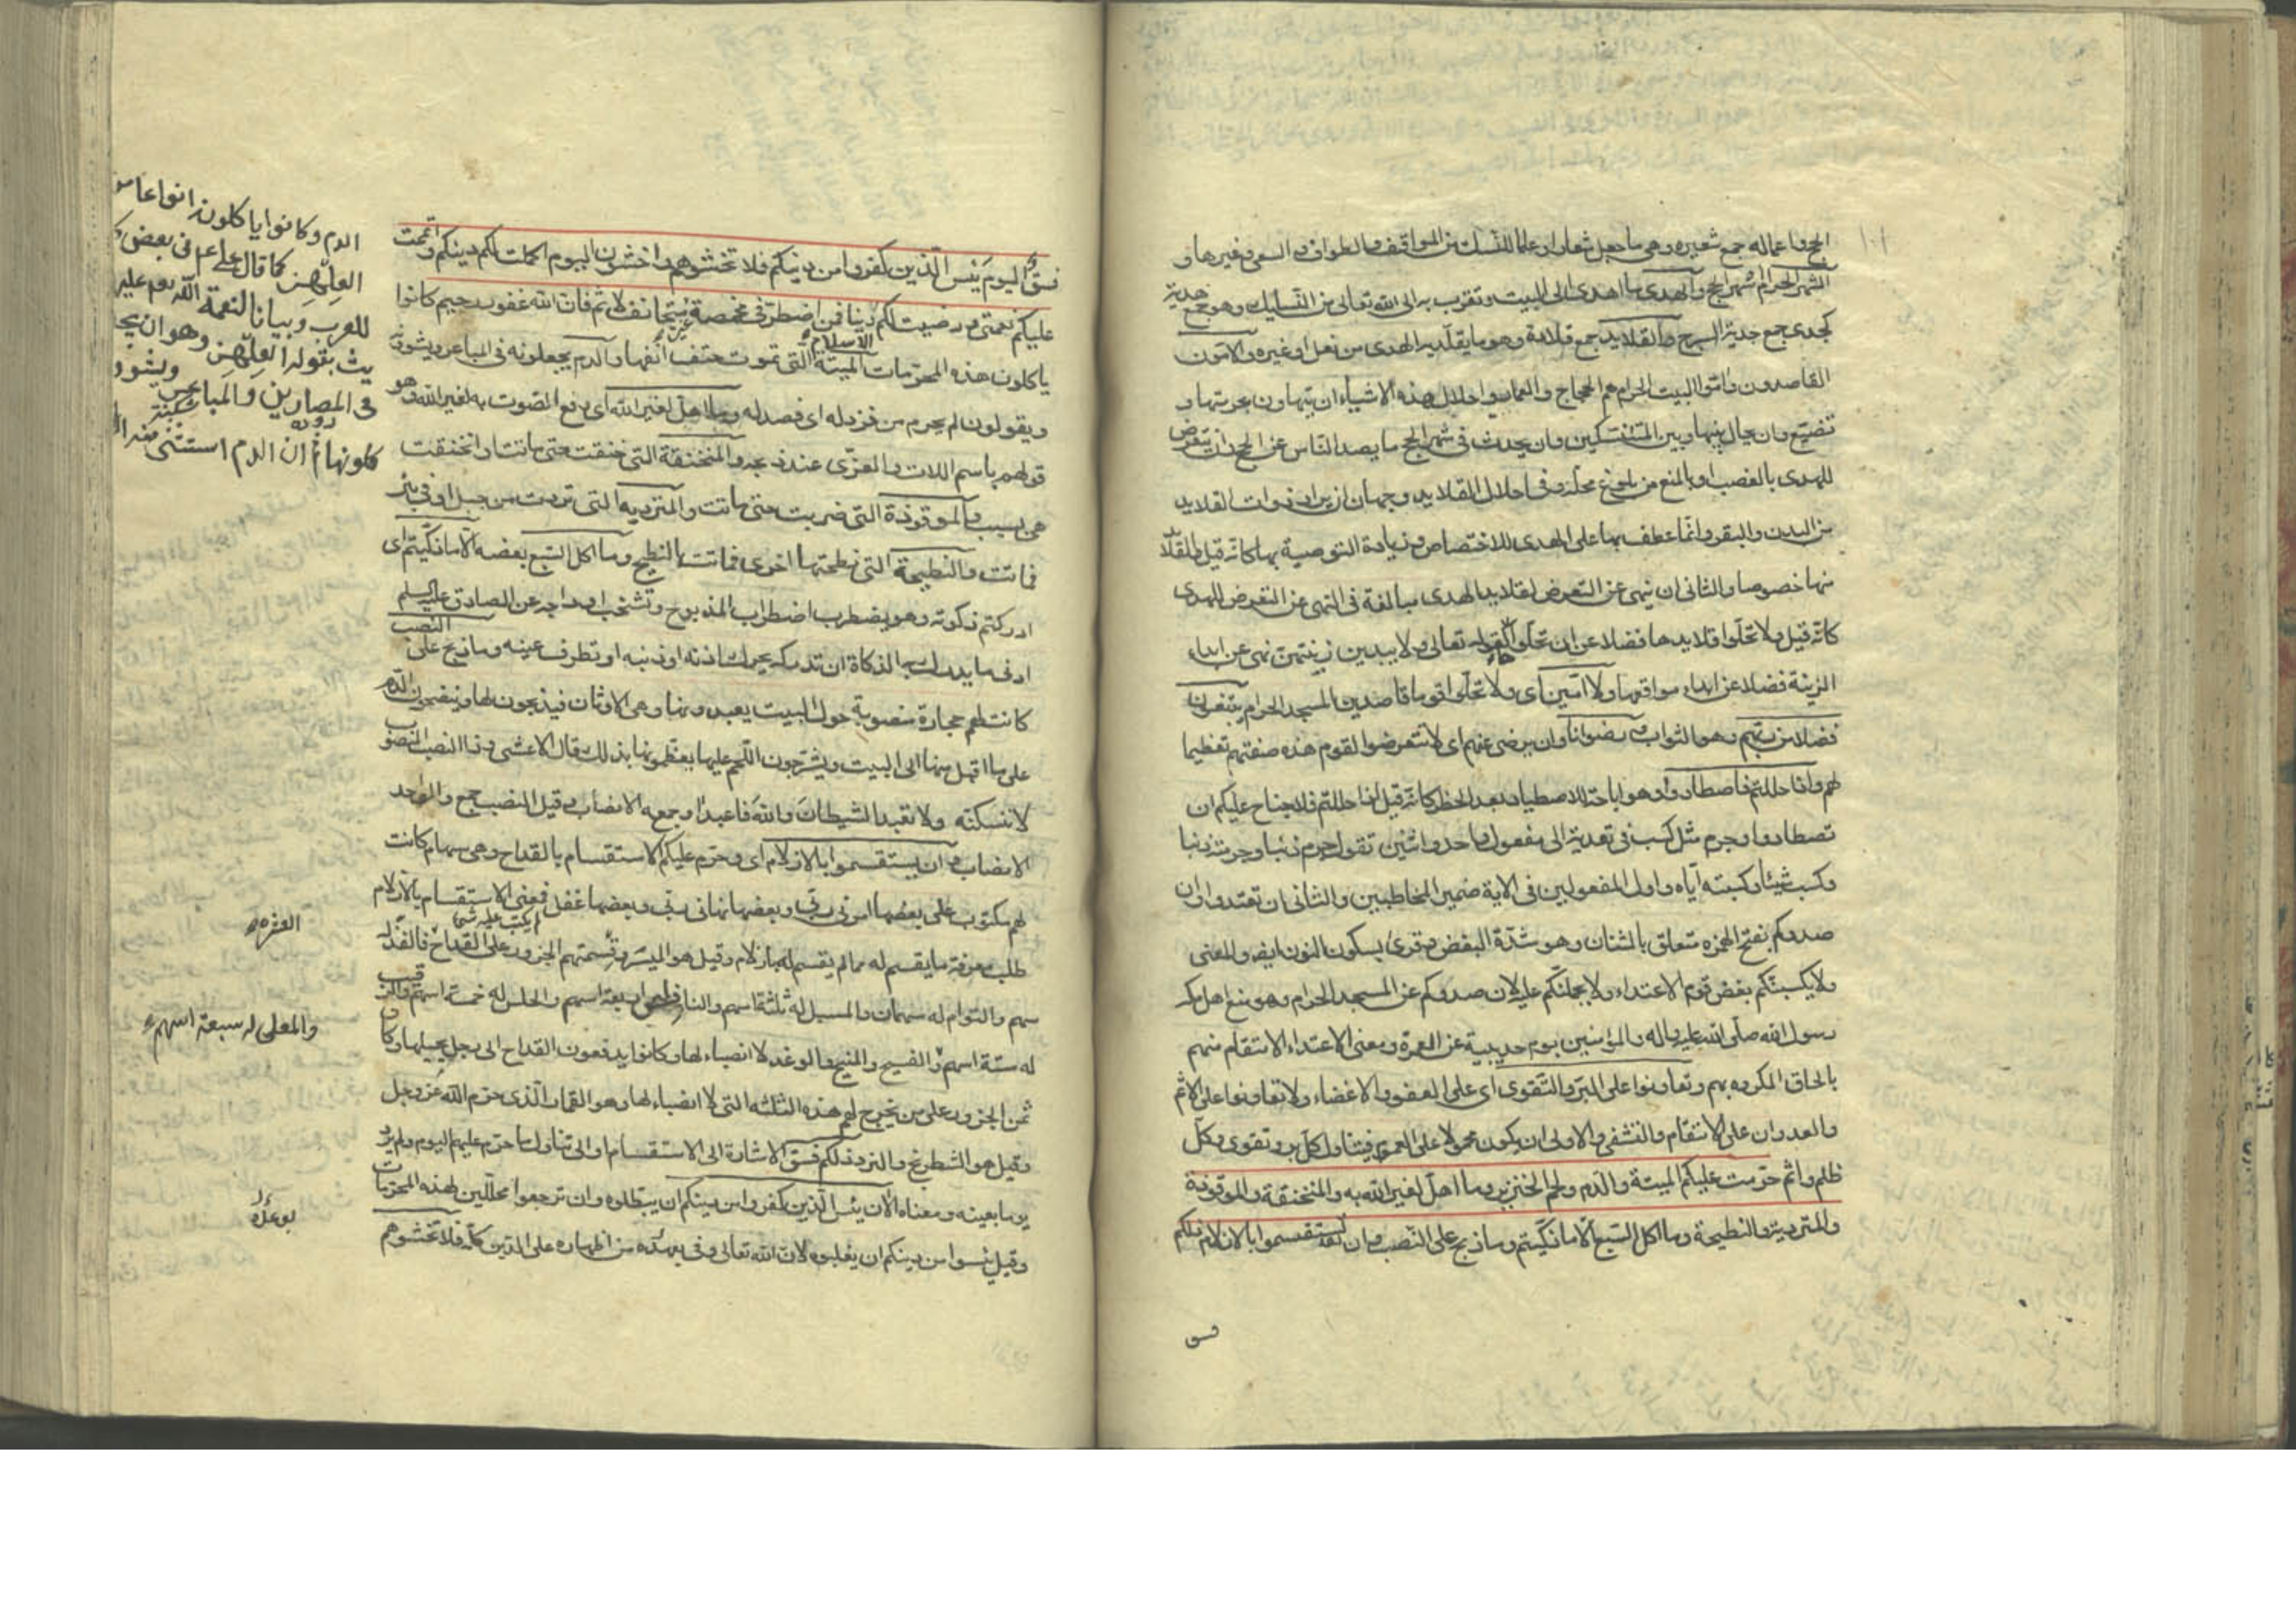 الحج واعماله جمع شعيره وهى ما جعل شعارا وعلما للنسك من المواقف والطواف والسعى وغيرها و
الشهر الحرام شهر الحج والهدى ما اهدى الى البيت وتقرب به الى الله تعالى من النسايك وهو جمع هدية
كجدى جمع جدية السرج والقلايد جمع قلادة وهو ما يقلد به الهدى من نعل او غيره والآمون
القاصدون وامّوا البيت الحرام هم الحجاج والعمار واحلال هذه الاشياء ان يتهاون بحرمتها و
تضيّع وان يحال بينها وبين المتنسّكين وان يحدث فى شهر الحج ما يصد الناس عن الحج وان يتعرض
للهدى بالغصب او بالمنع من بلوغ محلّه وفى احلال القلايد وجهان ان يراد ذوات القلايد
من البدن والبقر وانّما عطف بها على الهدى للاختصاص وزيادة التوصية بها كانّه قيل والقلايد
منها خصوصا والثانى ان ينهى عن التعرض لقلايد الهدى مبالغة فى النهى عن التعرض للهدى
كانّه قيل ولا تحلّوا قلايدها فضلا عن ان تحلّوها كقوله تعالى ولا يبدين زينتهنّ نهى عن ابداء
الزينة فضلا عن ابداء مواقعها ولا آمّين اى ولا تحلّوا قوما قاصدين المسجد الحرام يبتغون
فضلا من ربّهم وهو الثواب ورضوانا وان يرضى عنهم اى لا تتعرضوا لقوم هذه صفتهم تعظيما
لهم واذا حللتم فاصطادوا وهو اباحة للاصطياد بعد الحظر كانّه قيل اذا حللتم فلا جناح عليكم ان
تصطادوا وجرم مثل كسب فى تعديته الى مفعول واحد واثنين تقول جرم ذنبا وجرمته ذنبا
وكسب شيئا وكسبته اياه واول المفعولين فى الآية ضمير المخاطبين والثانى ان تعتدوا وان
صدوكم بفتح الهمزه متعلق بالشنآن وهو شدّة البغض وقرئ بسكون النون ايضا والمعنى
ولا يكسبنّكم بغض قوم الاعتداء ولا يحملنّكم عليه لان صدوكم عن المسجد الحرام وهو منع اهل مكه
رسول الله صلى الله عليه واله والمؤمنين يوم حديبية عن العمرة ومعنى الاعتداء الانتقام منهم
بالحاق المكروه بهم وتعاونوا على البرّ والتقوى اى على العفو والاغضاء ولا تعاونوا على الاثم
والعدوان على الانتقام والتشفى والاولى ان يكون محمولا على العموم فيتناول كلّ بر وتقوى وكلّ
ظلم واثم حرّمت عليكم الميتة والدم ولحم الخنزير وما اهلّ لغير الله به والمنخنقة والموقوذة
والمتردية والنطيحة وما اكل السّبع الّا ما ذكّيتم وما ذبح على النّصب وان تستقسموا بالازلام ذلكم
فسق
فسقٌ اليوم يَئِس الّذين كفروا من دينكم فلا تخشوهم واخشون اليوم اكملت لكم دينكم واتممت
عليكم نعمتى ورضيت لكم الاسلام دينا فمن اضطرّ فى مخمصة غير متجانف لاثم فانّ الله غفور رحيم كانوا
ياكلون هذه المحرّمات الميتة التى تموت حتف انفها والدم يجعلونه فى المباعر ويشوونه
ويقولون لم يحرم من فزد له اى فصد له وما اهلّ لغير الله اى رفع الصّوت به لغير الله وهو
قولهم باسم اللات والعزّى عند ذبحه والمنخنقة التى خنقت حتى ماتت او انخنقت
هى بسبب والموقوذة التى ضربت حتى ماتت والمتردية التى تردت من جبل او فى بئر
فماتت والنطيحة التى نطحتها اخرى فماتت بالنطح وما اكل السّبع بعضه الّا ما ذكّيتم اى
ادركتم ذكوته وهو يضطرب اضطراب المذبوح وتشخب اوداجه عن الصادق عليه السلم
ادنى ما يدرك به الذكاة ان تدركه يحرك اذنه او ذنبه او تطرف عينه وما ذبح على النصب
كانت لهم حجارة منصوبة حول البيت يعبدونها وهى الاوثان فيذبحون لها وينضحون الدّم
على ما اقبل منها الى البيت ويشرّحون اللحم عليها يعظمونها بذلك قال الاعشى وذا النصب المنصوب
لا تنسكنّه ولا تعبد الشيطان واللهَ فاعبدا وجمعه الانصاب وقيل النصب جمع والواحد
الانصاب وان يستقسموا بالازلام اى وحرّم عليكم الاستقسام بالقداح وهى سهام كانت
لهم مكتوب على بعضها امرنى ربّى وبعضها نهانى ربّى وبعضها غفل لم يكتب عليه شئ فمعنى الاستقسام بالازلام
طلب معرفة ما يقسم له مما لم يقسم له بالازلام وقيل هو الميسر وقسمتهم الجزور على القداح العشره فالفذّ له
سهم والتوام له سهمان والمسبل له ثلثة اسهم والنافس له اربعة اسهم والحلس له خمسة اسهم والرقيب
له ستة اسهم والمعلى له سبعة اسهم والفسيح والمنيح والوغد لا انصباء لها وكانوا يدفعون القداح الى رجل يجيلها وكان
ثمن الجزور على من يخرج لهم هذه الثلثه التى لا انصباء لها وهو القمار الّذى حرم الله عز وجل
وقيل هو الشطرنج والنرد ذلكم فسق الاشارة الى الاستقسام او الى تناول ما حرم عليهم اليوم ولم يرد
يوما بعينه ومعناه الآن يئس الّذين كفروا من دينكم ان يبطلوه وان ترجعوا محلّلين لهذه المحرّمات
وقيل يئسوا من دينكم ان يغلبوه لانّ الله تعالى وفى بوعده من اظهاره على الدّين كلّه فلا تخشوهم
الدم وكانوا ياكلون انواعا
العِلهِز كما قال على ع فى بعض
للعرب وبيانا لنعمة الله تعم عليهم
يث بقوله العِلهِز وهو ان
فى المصارين والمباعر ويشوو
كلونها ثم ان الدم استثنى منه
العشره
والمعلى له سبعة اسهم
بوعده